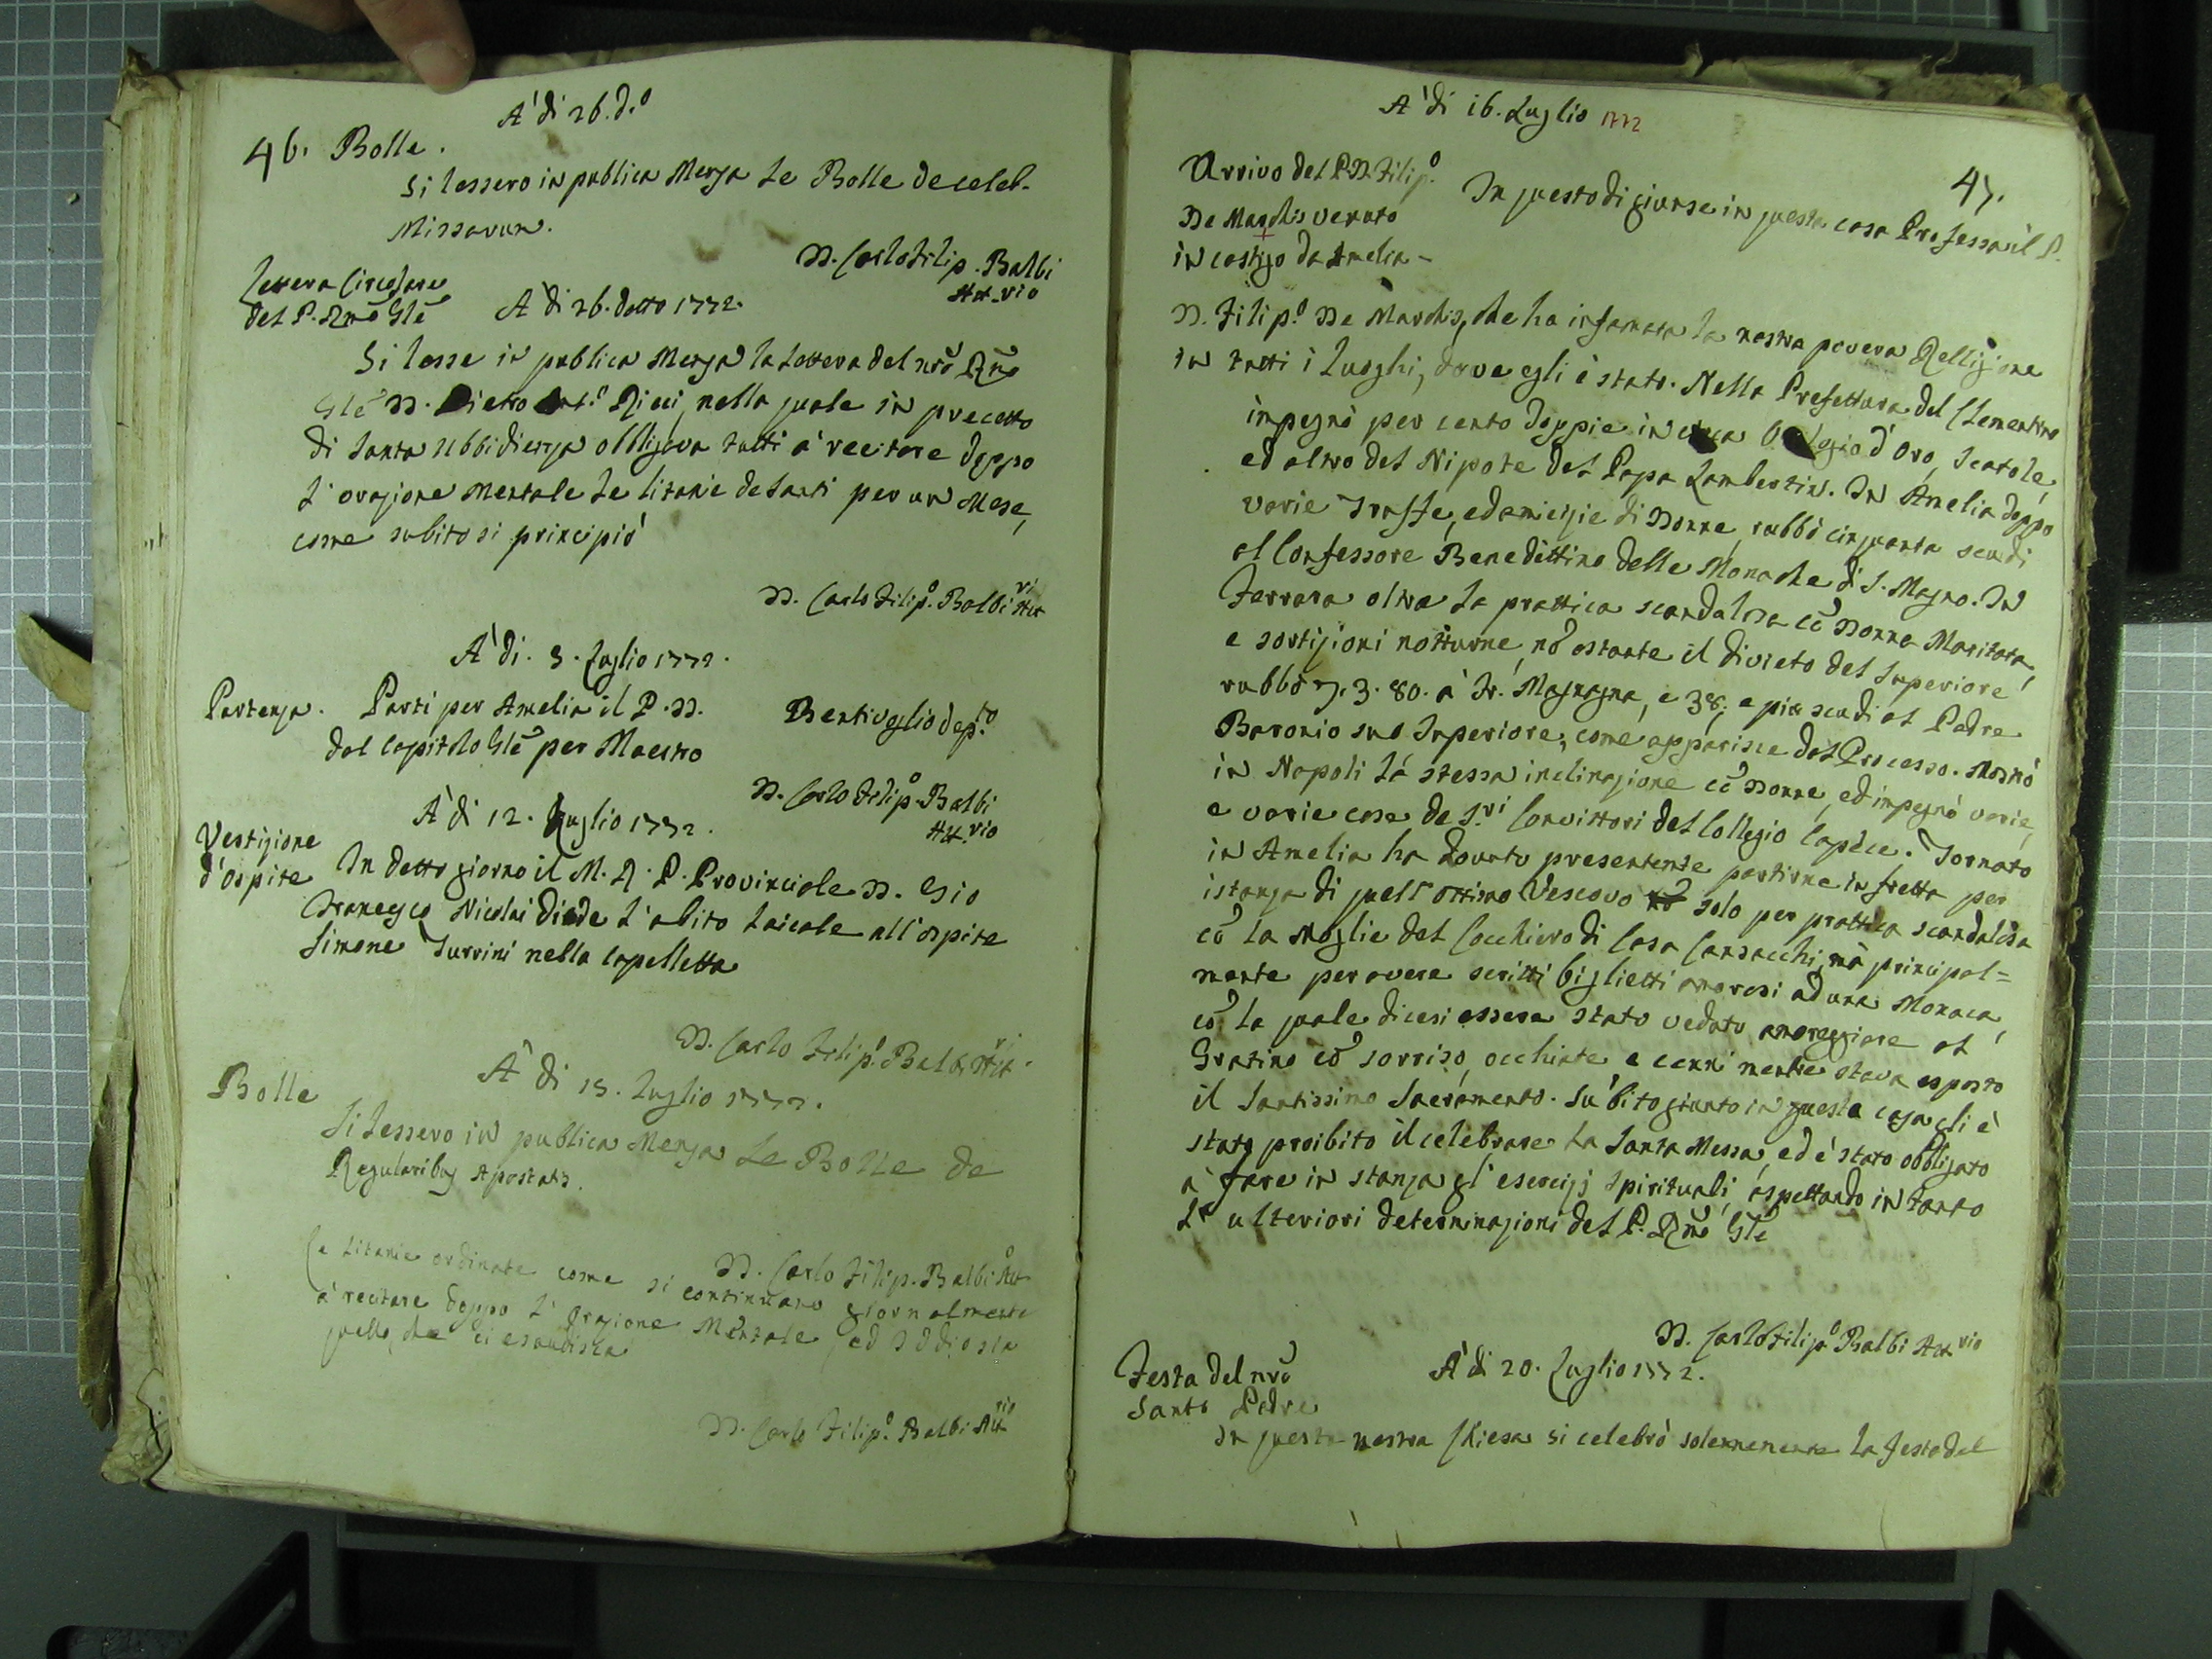 A' di 26. d.o
46. Bolle.
Si lessero in publica Menza le Bolle de celeb.
Missarum.
D. Carlo Filip. Balbi
Att.rio
Lettera Circolare
del P. Rmo Gle
A' di 26. detto 1772.
Si lesse in publica Menza la lettera del nro Rmo
Gle D. Pietro Ant.o Ricci, nella quale in precetto
di santa Ubbidienza obbligava tutti à recitare doppo
l'orazione Mentale le litanie de santi per un Mese,
come subito si principiò
D. Carlo Filip.o Balbi Att.ri
A' di. 3. Luglio 1772.
Partenza. Partì per Amelia il P. D. Bentivoglio dep.to
dal capitolo Gle per Maestro
D. Carlo Filip.o Balbi
Att.rio
A' di 12. Luglio 1772.
Vestizione
d'ospite
In detto giorno il M. R. P. Provinciale D. Gio
Francesco Nicolai diede l'abito laicale all'ospite
Simone Turrini nella capelletta
D. Carlo Filip.o Balbi Att.ri
A' di 15. Luglio 1772.
Bolle
Si lessero in publica Menza le Bolle de
Regularibus Apostatis.
D. Carlo Filip.o Balbi Att
Le litanie ordinate come si continuano giornalmente
à recitare doppo l'orazione Mentale, ed Iddio sia
quello, che ci esaudisca
D. Carlo Filip.o Balbi Att.rio
A' di 16. Luglio 1772
47.
Arrivo del P. D. Filip.o
De Marchis venuto
in castigo da Amelia -
In questo di giunse in questa casa Professa il P.
D. Filip.o De Marchis, che ha infamata la nostra povera Relligione
in tutti i luoghi, dove egli è stato. Nella Prefettura del Clementino
impegnò per cento doppie in circa Orologio d'oro, scatole,
ed altro del Nipote del Papa Lambertin. In Amelia doppo
varie truffe, ed amicizie di Donne, rubbò cinquanta scudi
al Confessore Benedittino delle Monache di S. Magno. In
Ferrara oltre la prattica scandalosa cō Donna Maritata,
e sortizioni notturne, nō ostante il divieto del Superiore,
rubbò 7. 3. 80. à Fr. Magnagna, e 38, e più scudi al Padre
Baronio suo Superiore, come apparisce dal Processo. Mostrò
in Napoli la stessa inclinazione cō Donne, ed impegnò varie,
e varie cose de S.ri Convittori del Collegio Capece. Tornato
in Amelia ha dovuto presentente partirne in fretta per
istanza di quell'ottimo Vescovo nō solo per prattica scandalosa
cō la Moglie del Cocchiero di Casa Cansacchi, mà principal=
mente per avere scritti biglietti amorosi ad una Monaca,
cō la quale dicesi essere stato veduto amoreggiare al
Gratino cō sorriso, occhiate, e cenni mentre stava esposto
il Santissimo Sacramento. Subito giunto in questa casa gli è
stato proibito il celebrare la Santa Messa, ed è stato obbligato
à fare in stanza gl'esercizj spirituali, aspettando in tanto
l'ulteriori determinazioni del P. Rmo Gle
D. Carlo Filip.o Balbi Att.rio
Festa del nrō
Santo Padre
A' di 20. Luglio 1772.
In questa nostra Chiesa si celebrò solennemente la festa del